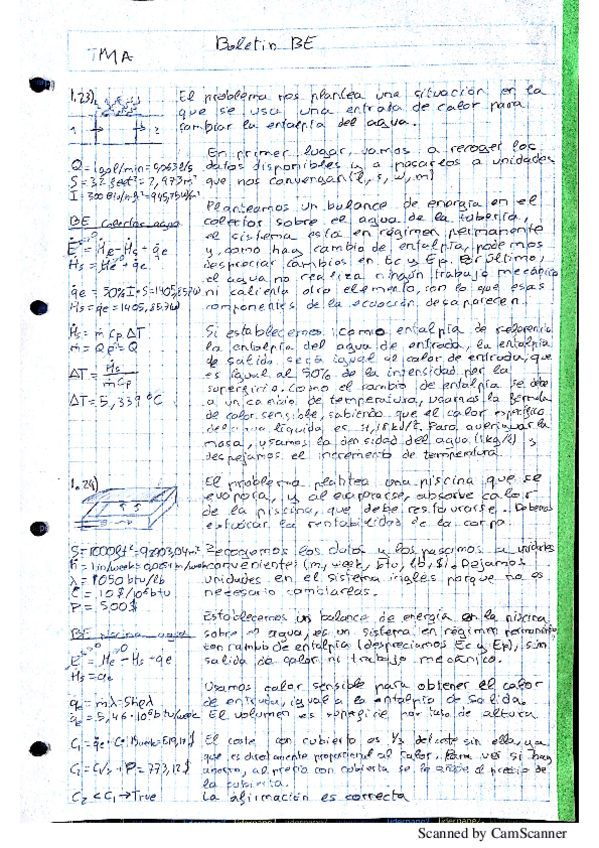 TMA
Boletin BE
1.23)
El problema nos plantea una situación en la
que se usa una entrada de calor para
cambiar la entalpía del agua.
1 2
En primer lugar, vamos a recoger los
datos disponibles y a pasarlos a unidades
que nos convengan (l, s, w, m)
Q = 1 gal/min = 0,063 l/s
S = 32 feet² = 2,973 m²
Planteamos un balance de energía en el
colector sobre el agua de la tubería,
el sistema está en régimen permanente
y, como hay cambio de entalpía, podemos
despreciar cambios en Ec y Ep. Por último,
el agua no realiza ningún trabajo mecánico
ni calienta otro elemento, con lo que esas
componentes de la ecuación desaparecen.
BE colector agua
Ė = Ḣe - Ḣs + q̇e
Ḣs = Ḣe + q̇e
Ḣs = q̇e = 1405,85
Si establecemos como entalpía de referencia
la entalpía del agua de entrada, la entalpía
de salida será igual al calor de entrada, que
es igual al 50% de la intensidad por la
superficie. Como el cambio de entalpía se debe
a un cambio de temperatura, usamos la fórmula
de calor sensible, sabiendo que el calor específico
del agua líquida es 4,18 kJ/ Para averiguar la
masa, usamos la densidad del agua (1kg/l) y
despejamos el incremento de temperatura
Ḣs = ṁ Cp ΔT
ṁ = Qρ = Q
ΔT = Ḣs / ṁ Cp
ΔT = 5,339 °C
1.24)
El problema plantea una piscina que se
evapora, y al evaporarse, absorbe calor
de la piscina, que debe restaurarse. Debemos
estudiar la rentabilidad de la
Recogemos los datos y los pasamos a unidades
convenientes (m, week, btu, lb, $). Dejamos
unidades en el sistema inglés porque no es
necesario cambiarlas.
λ = 1050 btu/lb
C = 10 $/10⁶ btu
P = 500 $
Establecemos un balance de energía en la piscina
sobre el agua, es un sistema en régimen permanente
con cambio de entalpía (despreciamos Ec y Ep), sin
salida de calor ni trabajo mecánico.
BE piscina agua
Ė = Ḣe - Ḣs + q̇e
Ḣs = q̇e
Usamos calor sensible para obtener el calor
de entrada, igual a la entalpía de salida.
El volumen es superficie por de altura
q̇e = ṁλ = Shρλ
q̇e = 5,46 · 10⁶ btu/week
El coste con cubierta es 1/3 del coste sin ella, ya
que es directamente proporcional al calor. Para ver si hay
ahorro, al precio con cubierta se le añade el precio de
la cubierta.
C₂ = C₁/3 + P = 773,12 $
C₂ < C₁ → True
La afirmación es correcta
Scanned by CamScanner